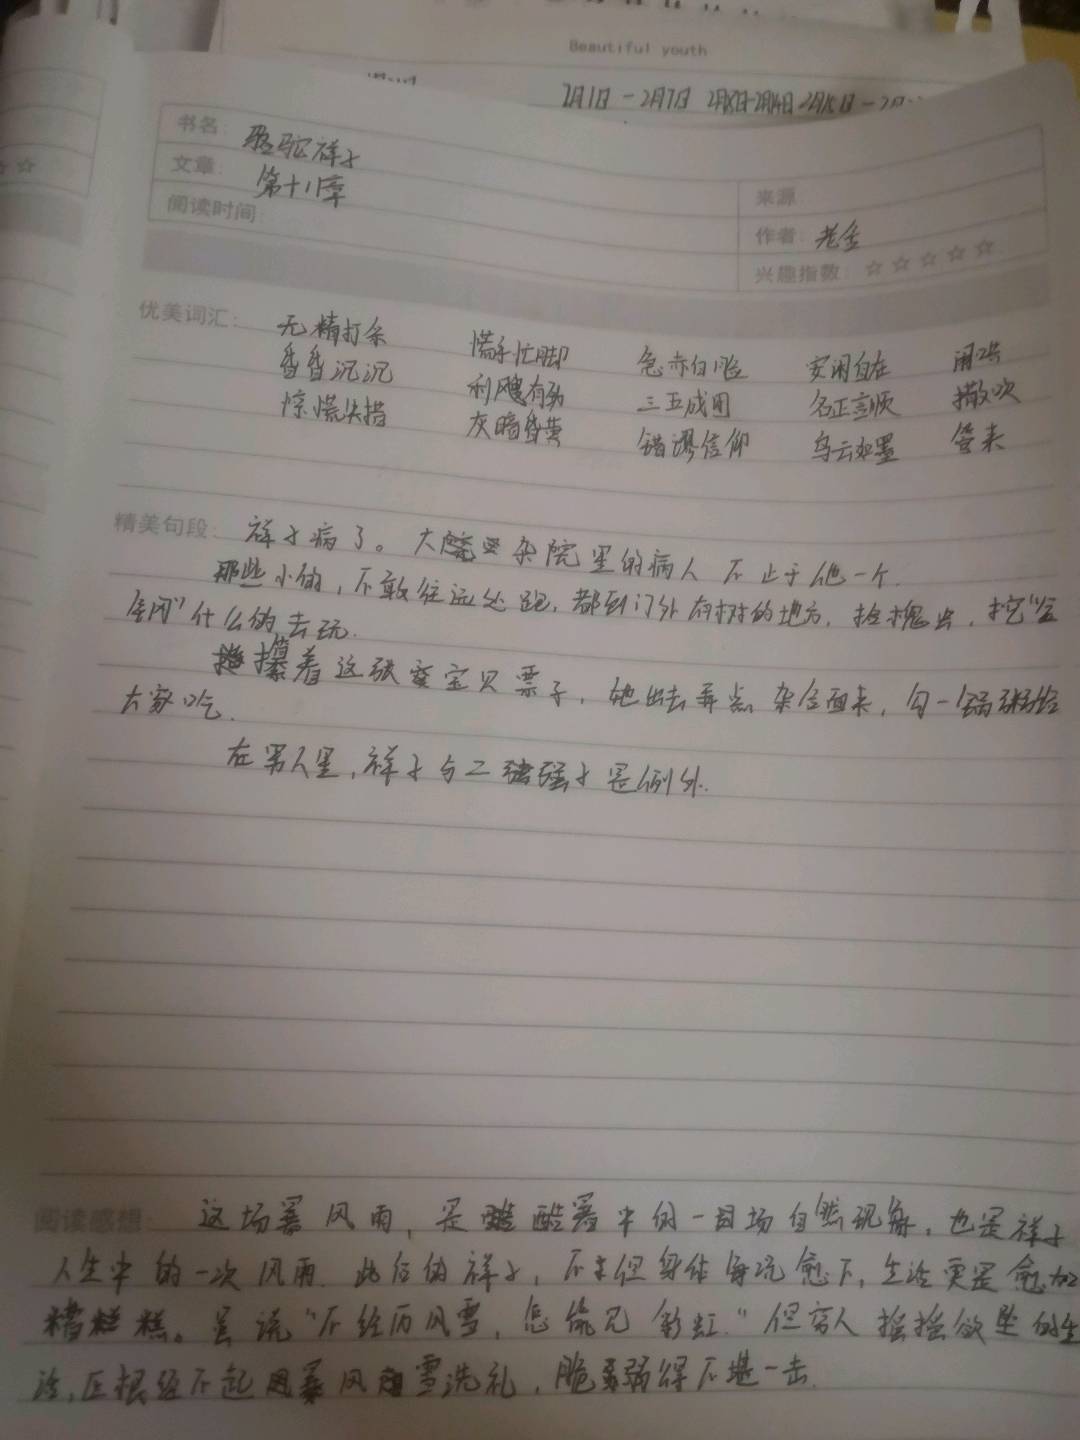 Beautiful youth
2月1日-2月7日
书名: 骆驼祥子
文章: 第十八章
来源
阅读时间:
作者: 老舍
兴趣指数: ☆☆☆☆☆
优美词汇: 无精打采 慌手忙脚 急赤白脸 安闲自在
昏昏沉沉 利飕有劲 三五成团 名正言顺
惊慌失措 灰暗昏黄 错谬信仰 乌云如墨
精美句段: 祥子病了。大杂院里的病人不止于他一个.
那些小的,不敢往远处跑,都到门外有树的地方,拾槐虫,挖"金
钢"什么的去玩.
攥着这张宝贝票子,她出去弄点杂合面来,勾一锅粥给
大家吃.
在男人里,祥子与二强子是例外.
阅读感想: 这场暴风雨,是酷暑中的一场自然现象,也是祥子
人生中的一次风雨.此后的祥子,不但身体每况愈下,生活更是愈加
糟糕。虽说"不经历风雪,怎能见彩虹."但穷人摇摇欲坠的生
活,压根经不起暴风雪洗礼,脆弱得不堪一击.